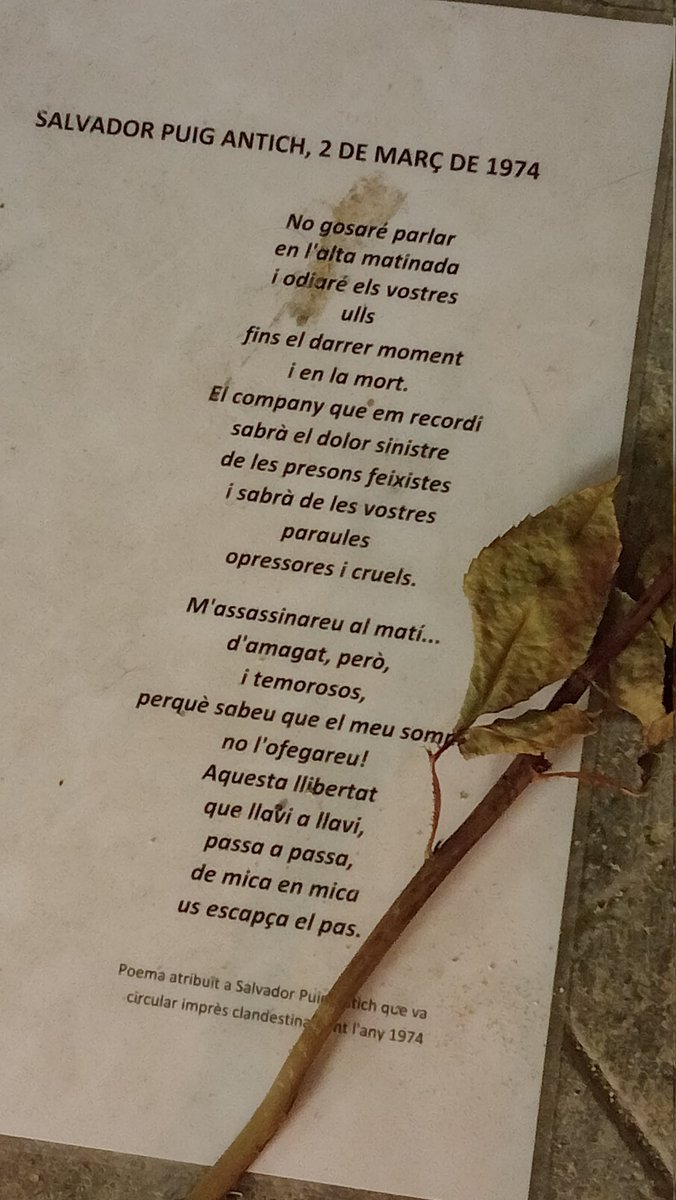 SALVADOR PUIG ANTICH, 2 DE MARÇ DE 1974
No gosaré parlar
en l'alta matinada
i odiaré els vostres
ulls
fins el darrer moment
i en la mort.
El company que em recordi
sabrà el dolor sinistre
de les presons feixistes
i sabrà de les vostres
paraules
opressores i cruels.
M'assassinareu al matí...
d'amagat, però,
i temorosos,
perquè sabeu que el meu
no l'ofegareu!
Aquesta llibertat
que llavi a llavi,
passa a passa,
de mica en mica
us escapça el pas.
Poema atribuït a Salvador Puig Antich que va
circular imprès l'any 1974